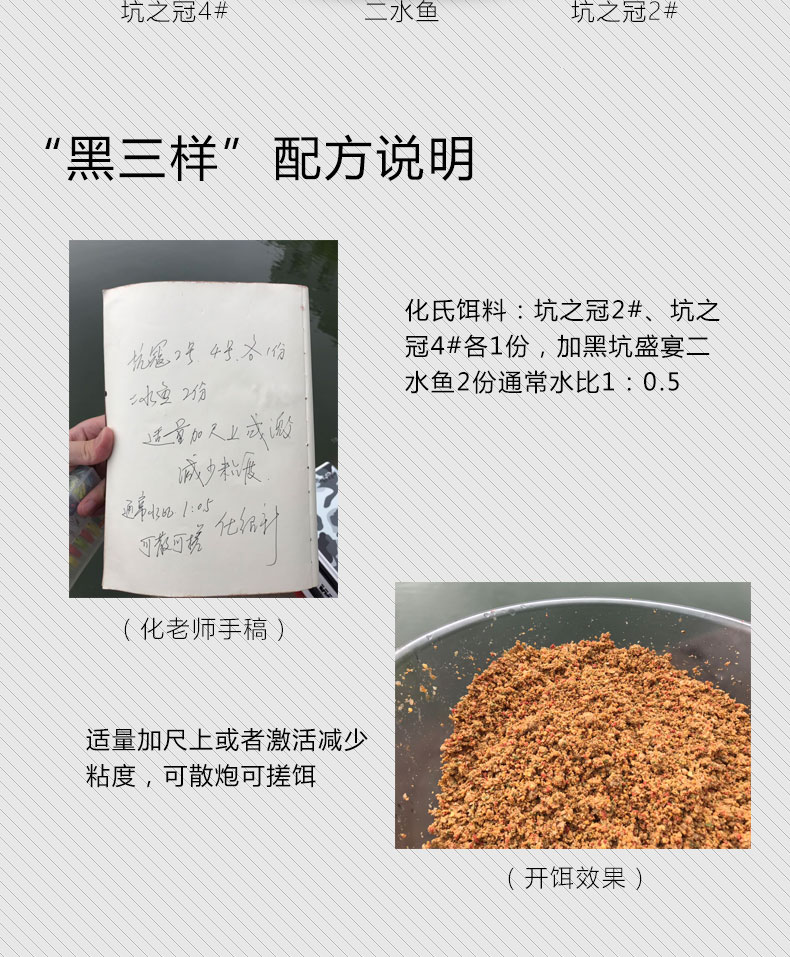 坑之冠4#
二水鱼
坑之冠2#
“黑三样”配方说明
坑冠2号 4号.各1份
二水鱼 2份
适量加尺上或激
减少粘度.
通常水比 1:05
可散可搓
化绍新
化氏饵料：坑之冠2#、坑之
冠4#各1份，加黑坑盛宴二
水鱼2份通常水比1：0.5
（化老师手稿）
适量加尺上或者激活减少
粘度，可散炮可搓饵
（开饵效果）